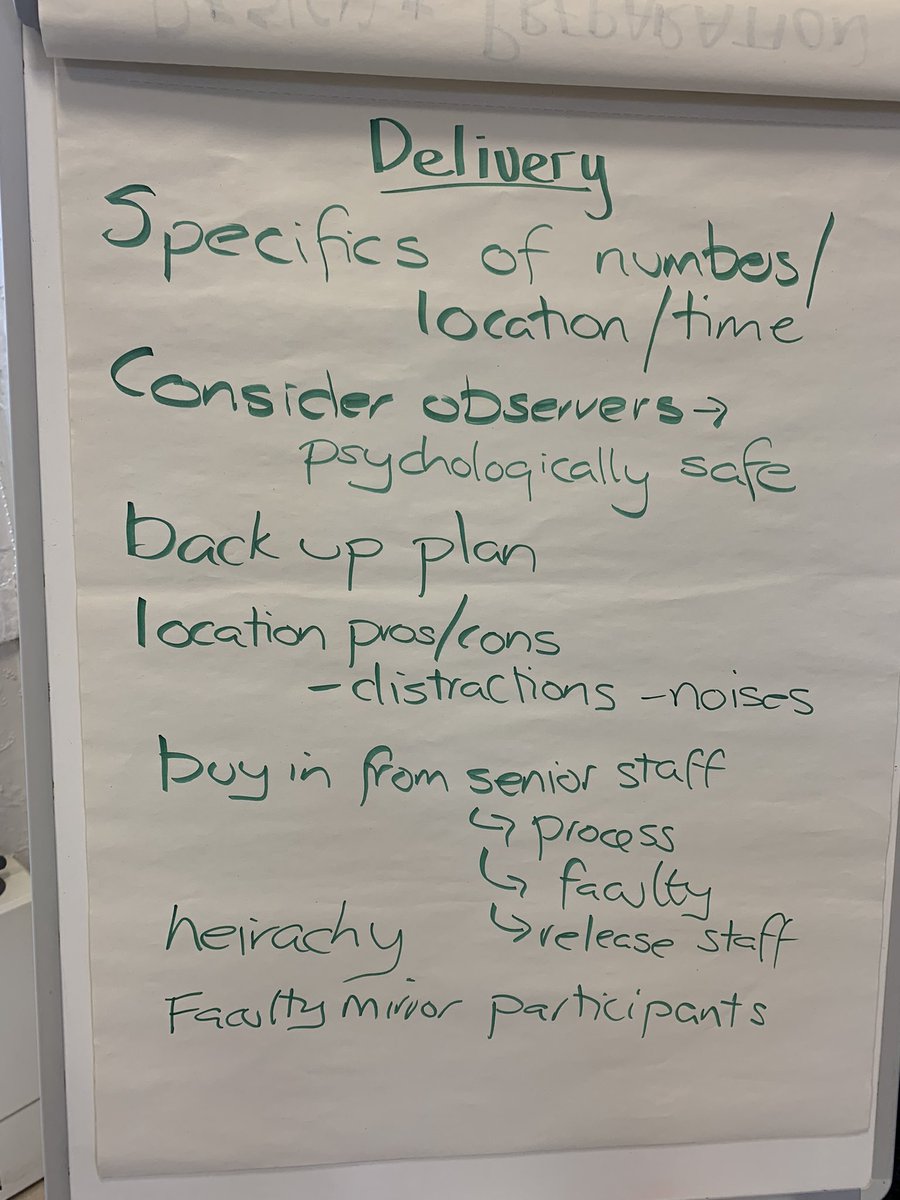 DESIGN + PREPARATION
Delivery
Specifics of numbers/
location/time
Consider observers→
psychologically safe
back up plan
location pros/cons
- distractions - noises
buy in from senior staff
↳ process
↳ faculty
↳ release staff
heirachy
Faculty mirror participants